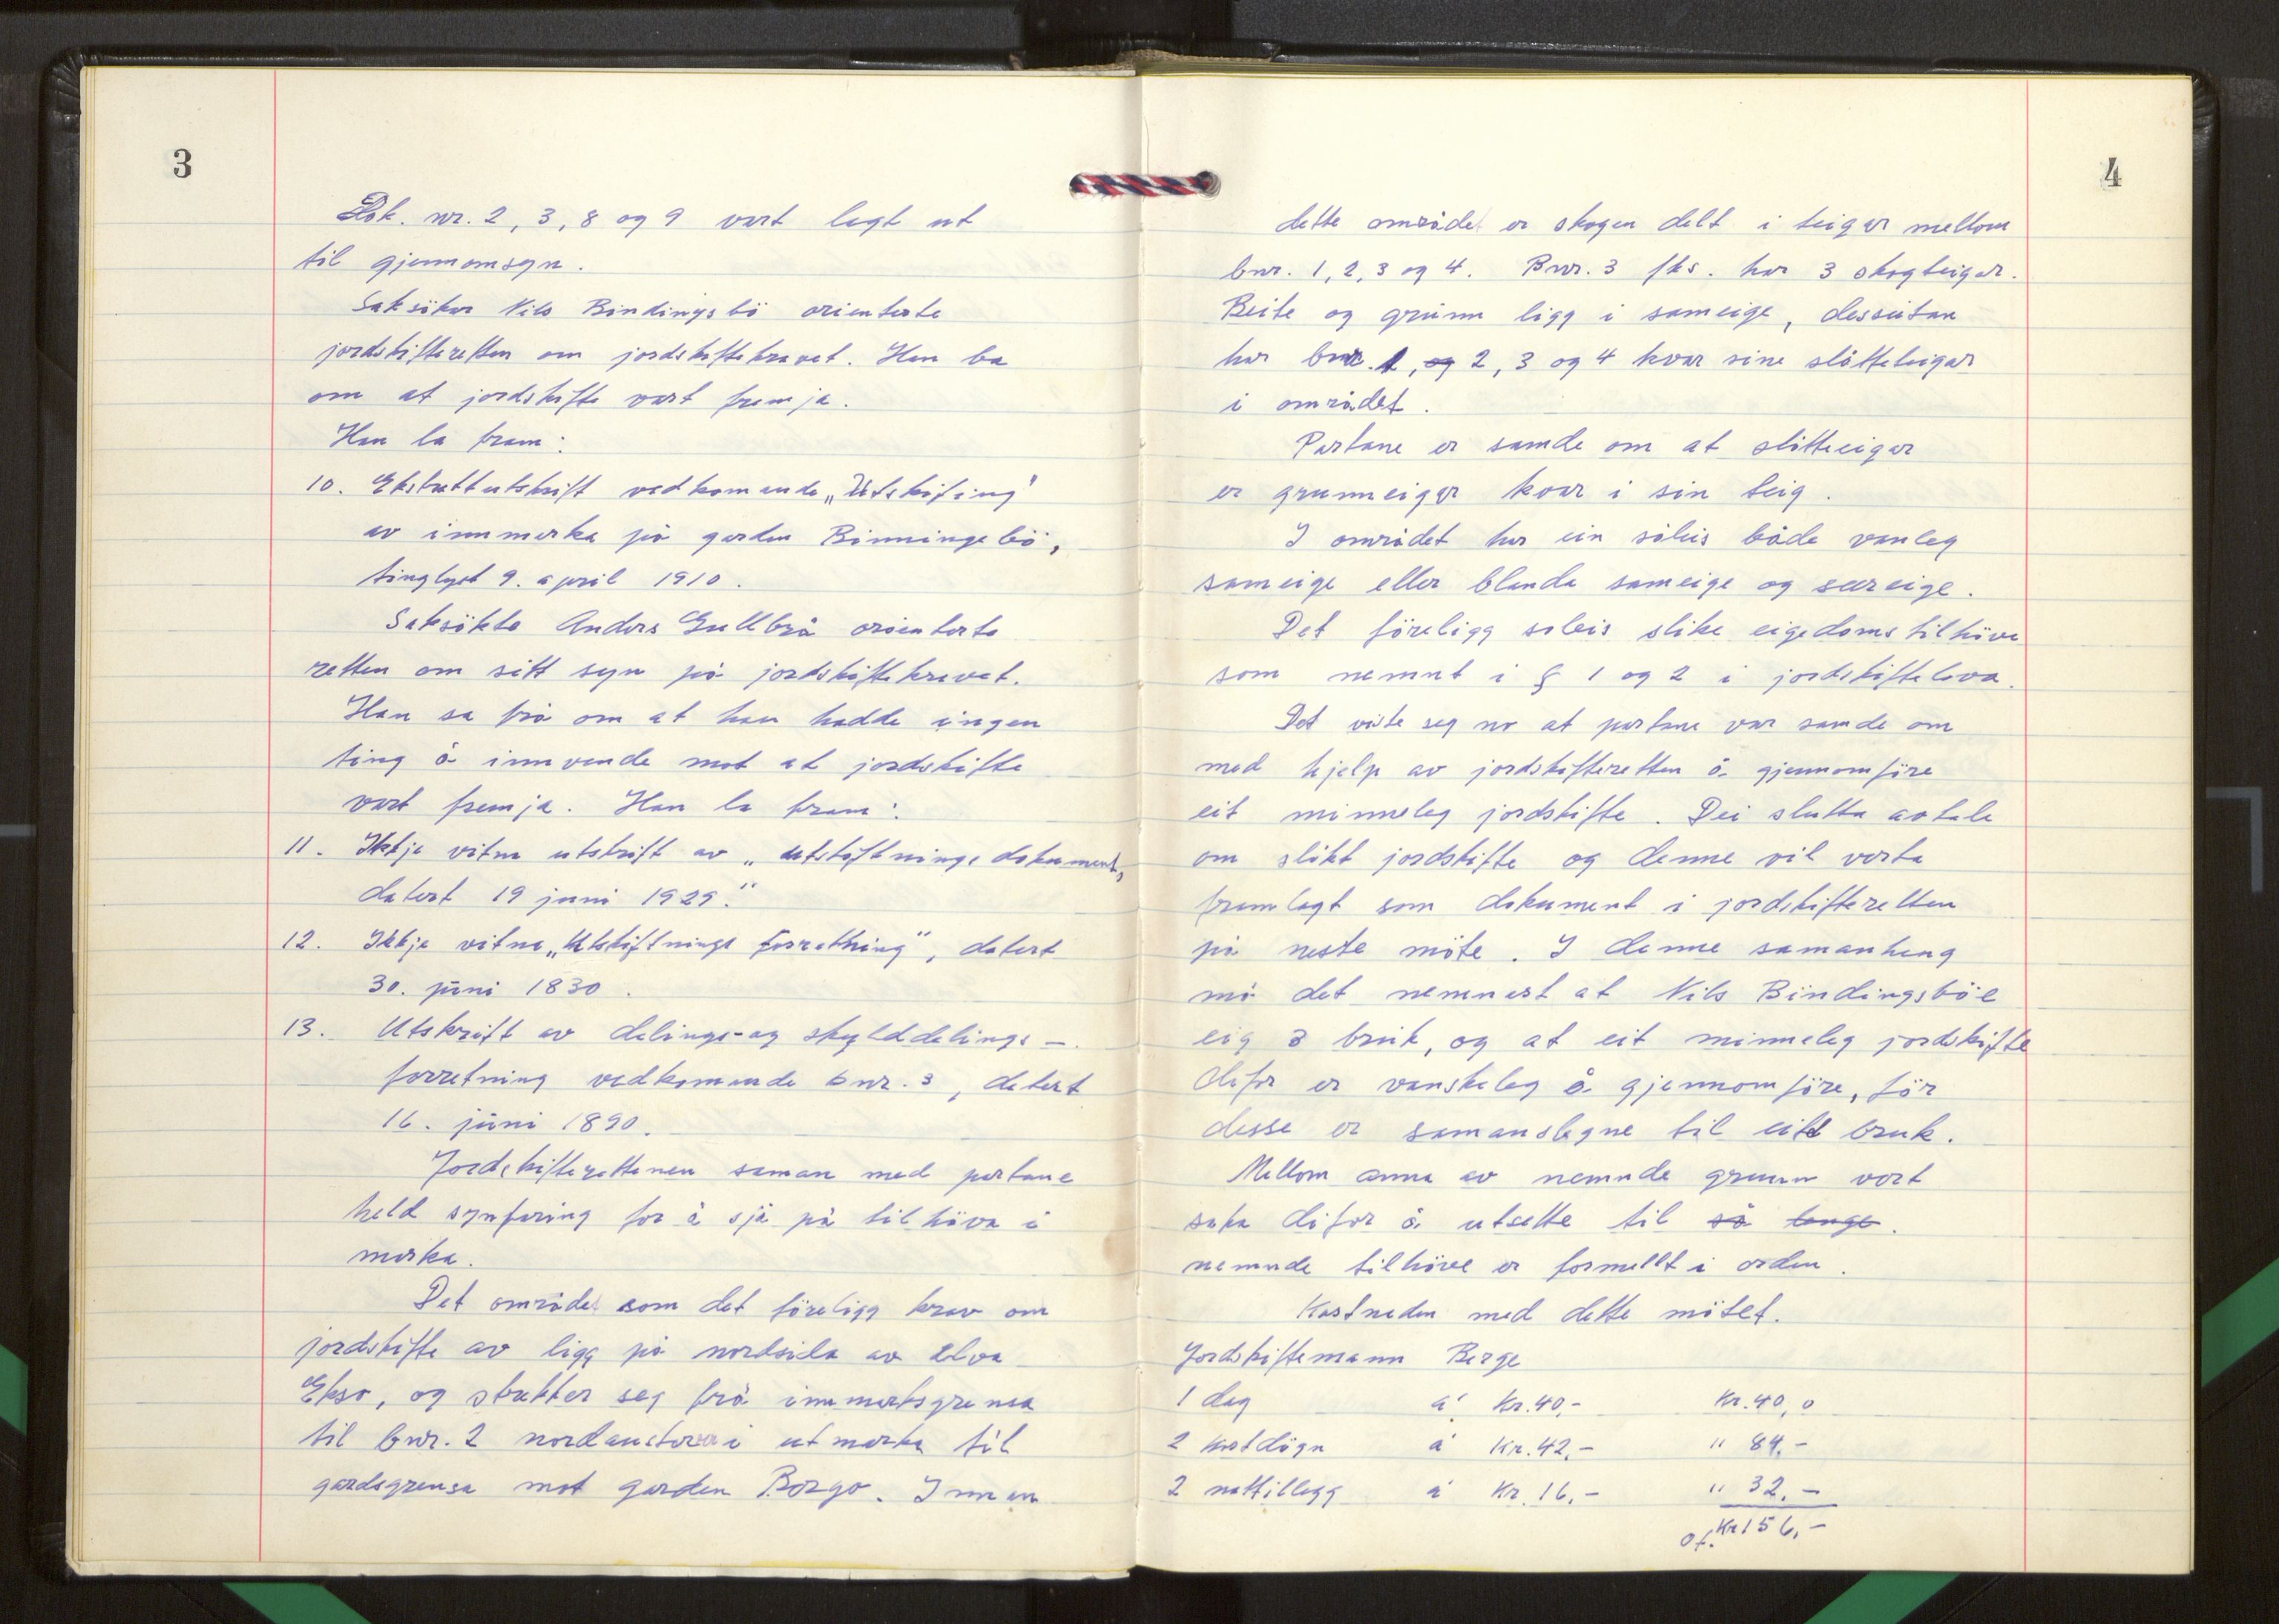 3
Dok. nr. 2, 3, 8 og 9 vart lagt ut
til gjennomsyn.
Saksökar Nils Bindingsbö orienterte
jordskifteretten om jordskiftekravet. Han ba
om at jordskifte vart fremja.
Han la fram:
10. Ekstraktutskrift vedkomande „Utskifing"
av innmarka på garden Binningebö,
tinglyst 9. april 1910.
Saksökte Anders Gullbrå orienterte
retten om sitt syn på jordskiftekravet.
Han sa frå om at han hadde ingen
ting å innvende mot at jordskifte
vart fremja. Han la fram:
11. Ikkje vitna utskrift av „utskiftnings dokument,
datert 19 juni 1929."
12. Ikkje vitna „Utskiftnings forrethning", datert
30. juni 1830.
13. Utskrift av delings- og skylddelings-
forretning vedkomande bnr. 3, datert
16. juni 1890.
Jordskifterettenen saman med partane
held synfaring for å sjå på tilhöva i
marka.
Det område som det föreligg krav om
jordskifte av ligg på nordsida av elva
Ekso, og strekker seg frå innmarksgrensa
til bnr. 2 nordaustover i utmarka til
gardsgrensa mot garden Borgo. Innan
4
dette området er skogen delt i teigar mellom
bnr. 1, 2, 3 og 4. Bnr. 3 fks. har 3 skogteigar.
Beite og grunn ligg i sameige, dessutan
har bnr. 1, og 2, 3 og 4 kvar sine slåtteteigar
i området.
Partane er samde om at slåtteeigar
er grunneigar kvar i sin teig.
I området har ein såleis både vanleg
sameige eller blanda sameige og særeige.
Det föreligg soleis slike eigedomstilhöve
som nemnt i § 1 og 2 i jordskiftelova.
Det viste seg no at partane var samde om
med hjelp av jordskifteretten å gjennomföre
eit minneleg jordskifte. Dei slutta avtale
om slikt jordskifte og denne vil verta
framlagt som dokument i jordskifteretten
på neste möte. I denne samanheng
må det nemnast at Nils Bindingsböe
eig 3 bruk, og at eit minneleg jordskifte
difor er vanskeleg å gjennomföre, för
desse er samanslegne til eitt bruk.
Mellom anna av nemnde grunn vert
saka difor å utsette til så lenge.
nemnde tilhöve er formellt i orden.
Kostnaden med dette mötet.
Jordskiftemann Berge
1 dag á Kr. 40,- Kr. 40,0
2 kostdögn á Kr. 42,- " 84,-
2 nattillegg á Kr. 16,- " 32,-
Of. Kr 156,-